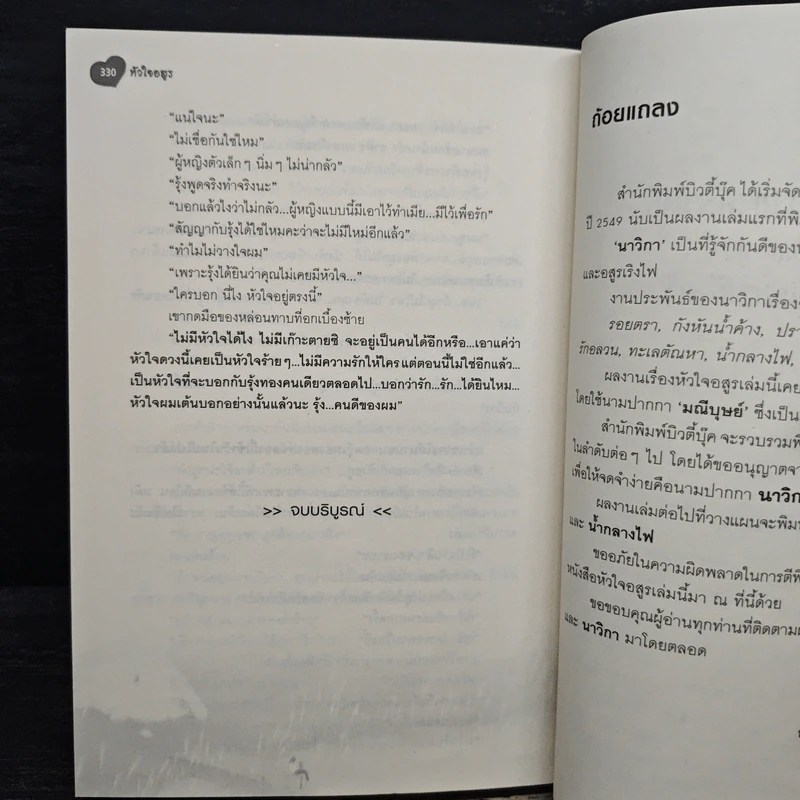 330 หัวใจอสูร
“แน่ใจนะ”
“ไม่เชื่อกันใช่ไหม”
“ผู้หญิงตัวเล็กๆ นิ่มๆ ไม่น่ากลัว”
“รุ้งพูดจริงทำจริงนะ”
“บอกแล้วไงว่าไม่กลัว...ผู้หญิงแบบนี้มีเอาไว้ทำเมีย...มีไว้เพื่อรัก”
“สัญญากับรุ้งได้ไหมคะว่าจะไม่มีใหม่อีกแล้ว”
“ทำไมไม่วางใจผม”
“เพราะรุ้งได้ยินว่าคุณไม่เคยมีหัวใจ...”
“ใครบอก นี่ไง หัวใจอยู่ตรงนี้”
เขากดมือของหล่อนทาบที่อกเบื้องซ้าย
“ไม่มีหัวใจได้ไง ไม่มีเก๊าะตายซิ จะอยู่เป็นคนได้อีกหรือ...เอาแค่ว่า
หัวใจดวงนี้เคยเป็นหัวใจร้ายๆ...ไม่มีความรักให้ใคร แต่ตอนนี้ไม่ใช่อีกแล้ว...
เป็นหัวใจที่จะบอกกับรุ้งทองคนเดียวตลอดไป...บอกว่ารัก...รัก...ได้ยินไหม...
หัวใจผมเต้นบอกอย่างนั้นแล้วนะ รุ้ง...คนดีของผม”
>> จบบริบูรณ์ <<
ถ้อยแถลง
สำนักพิมพ์บิวตี้บุ๊ค ได้เริ่มจัด
ปี 2549 นับเป็นผลงานเล่มแรกที่พิ
‘นาวิกา’ เป็นที่รู้จักกันดีของ
และอสูรเริงไฟ
งานประพันธ์ของนาวิกาเรื่อง
รอยตรา, กังหันน้ำค้าง, ปรา
รักอลวน, ทะเลตัณหา, น้ำกลางไฟ,
ผลงานเรื่องหัวใจอสูรเล่มนี้เคย
โดยใช้นามปากกา ‘มณีบุษย์’ ซึ่งเป็น
สำนักพิมพ์บิวตี้บุ๊ค จะรวบรวมพิ
ในลำดับต่อๆ ไป โดยได้ขออนุญาตจา
เพื่อให้จดจำง่ายคือนามปากกา นาวิก
ผลงานเล่มต่อไปที่วางแผนจะพิม
และ น้ำกลางไฟ
ขออภัยในความผิดพลาดในการตีพิ
หนังสือหัวใจอสูรเล่มนี้มา ณ ที่นี้ด้วย
ขอขอบคุณผู้อ่านทุกท่านที่ติดตาม
และ นาวิกา มาโดยตลอด